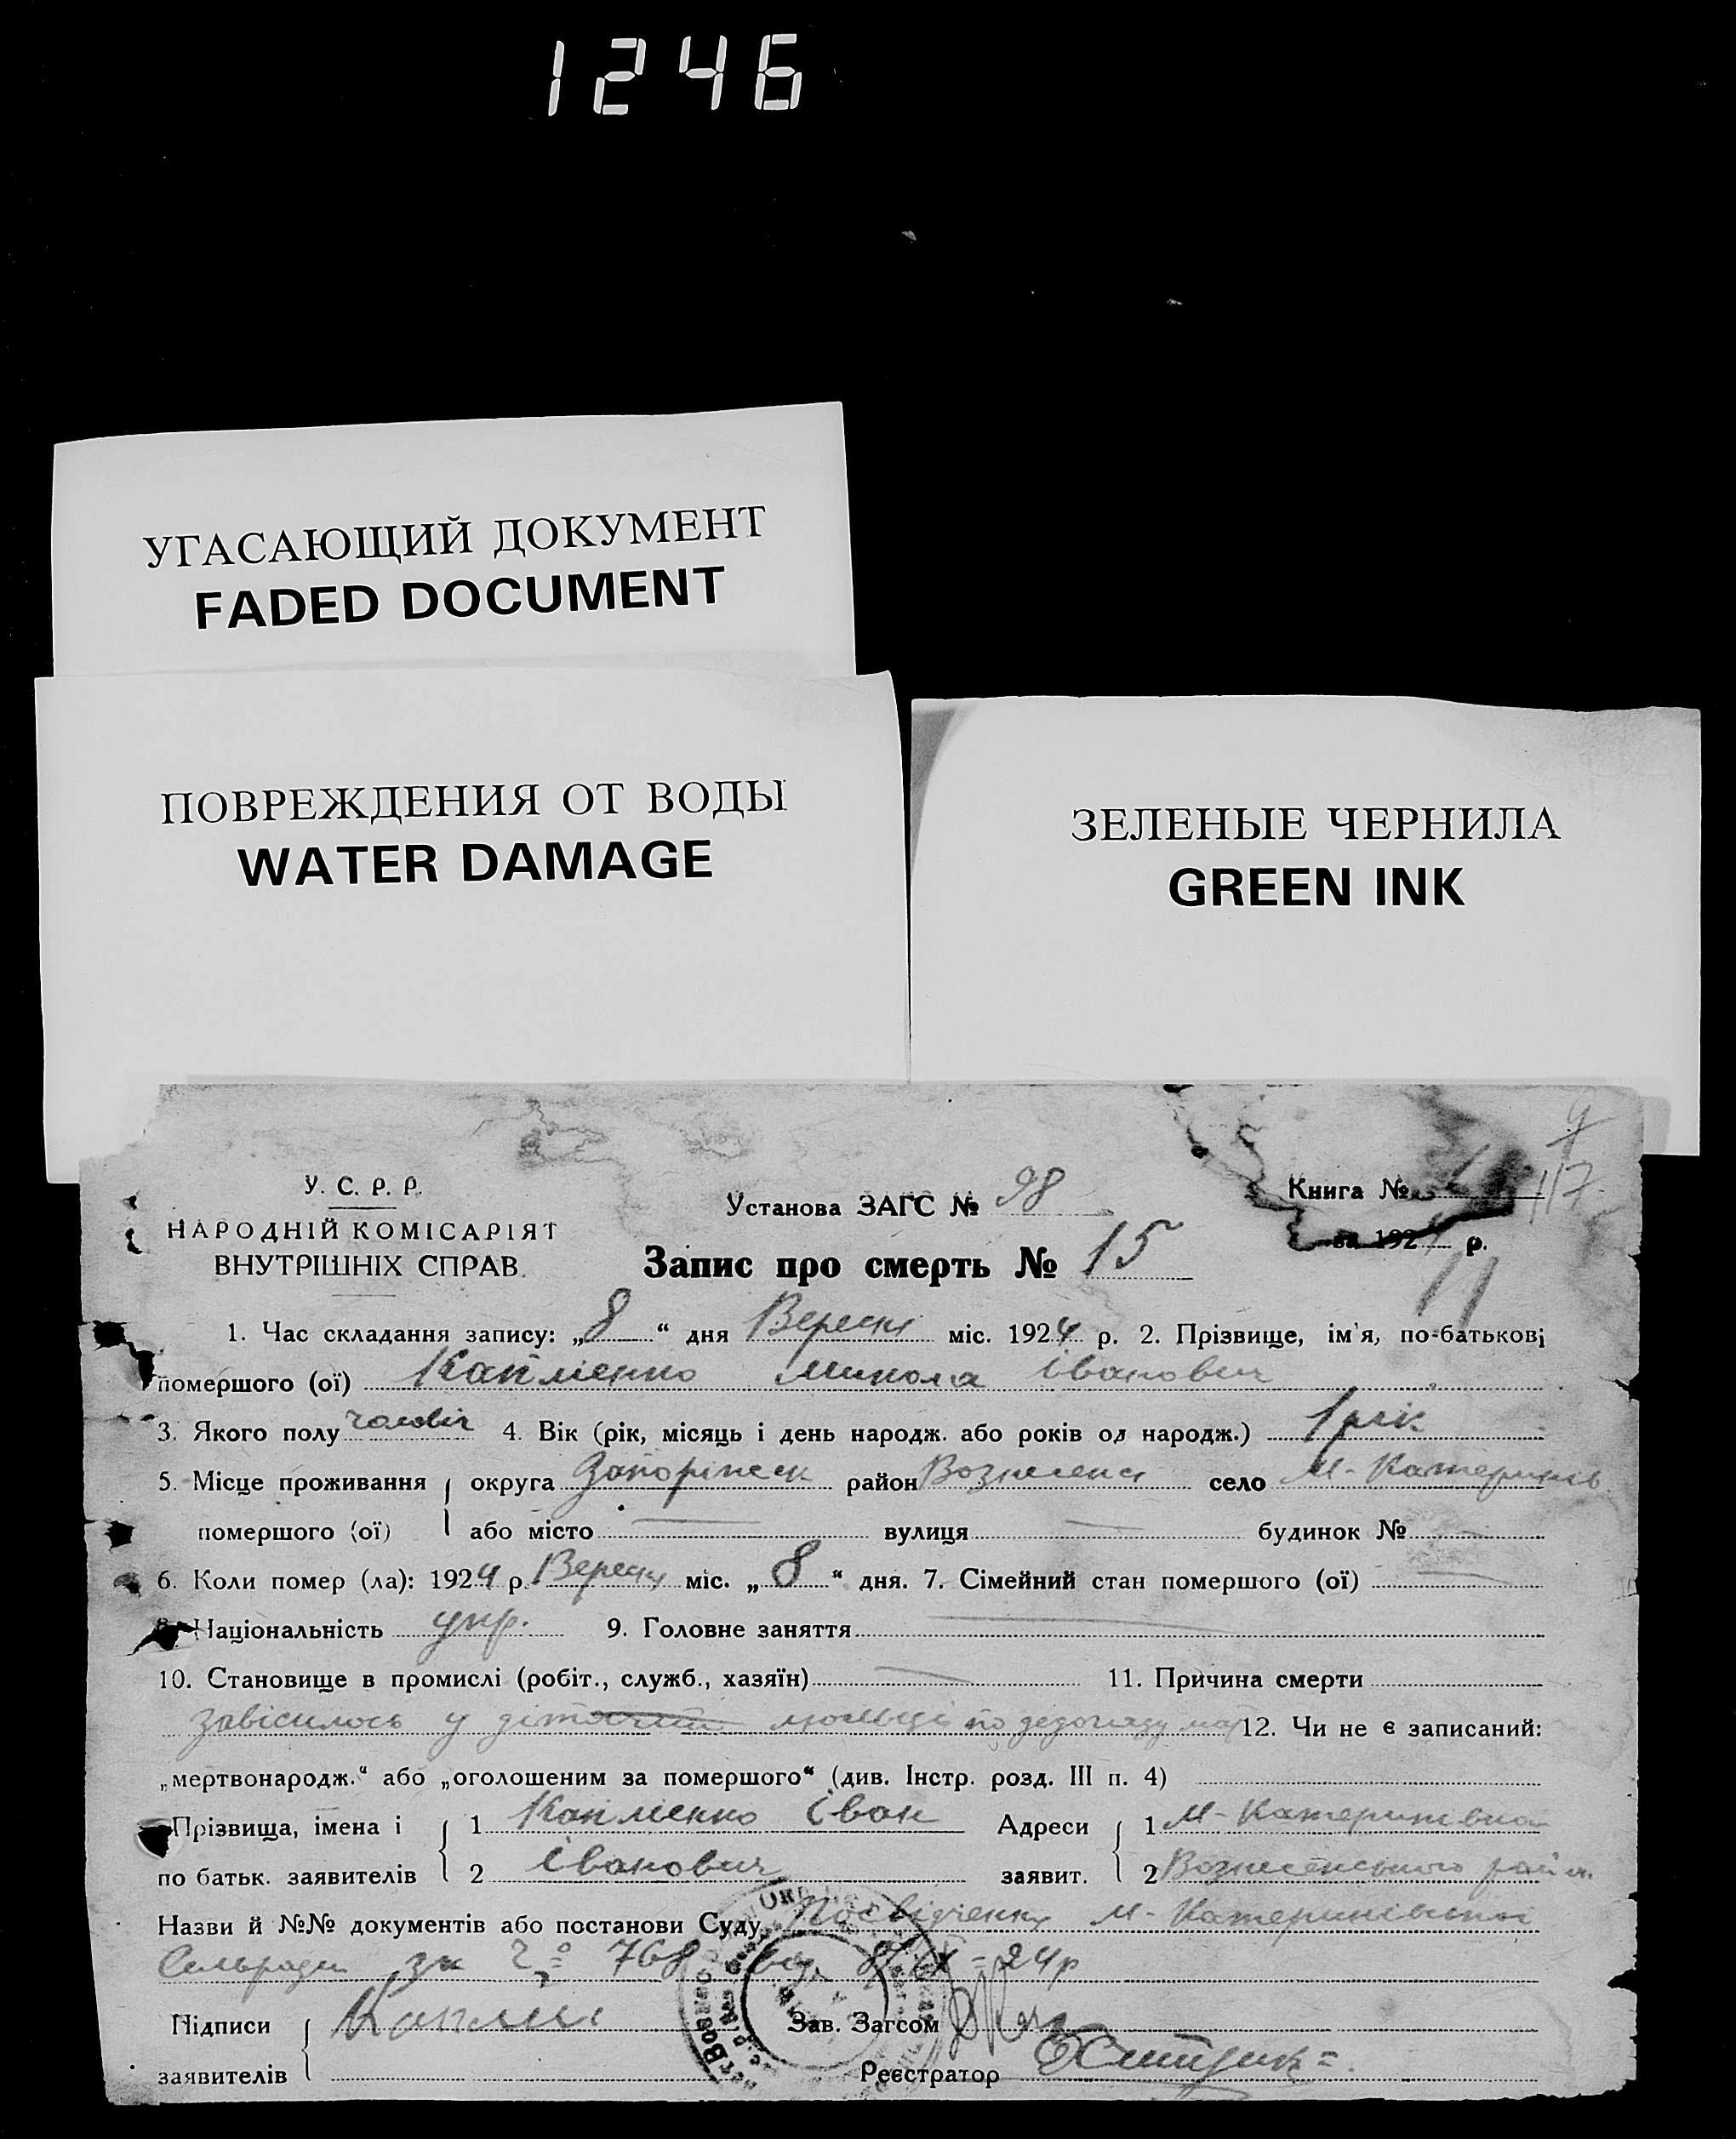 1246
УГАСАЮЩИЙ ДОКУМЕНТ
FADED DOCUMENT
ПОВРЕЖДЕНИЯ ОТ ВОДЫ
WATER DAMAGE
ЗЕЛЕНЫЕ ЧЕРНИЛА
GREEN INK
У. С. Р. Р.
НАРОДНІЙ КОМІСАРІЯТ
ВНУТРІШНІХ СПРАВ.
Установа ЗАГС № 98
Запис про смерть № 15
Книга № 117
за 192 р.
1. Час складання запису: „8“ дня Вересня міс. 1924 р. 2. Прізвище, ім'я, по-батькові
помершого (ої) Микола Іванович
3. Якого полу чоловіч 4. Вік (рік, місяць і день народж. або років од народж.) 1 рік
5. Місце проживання округа Запоріжск район Вознесенс село М-Катеринів
помершого (ої) або місто вулиця будинок №
6. Коли помер (ла): 1924 р. Вересня міс. „8“ дня. 7. Сімейний стан помершого (ої)
8. Національність укр. 9. Головне заняття
10. Становище в промислі (робіт., служб., хазяїн) 11. Причина смерти
у по 12. Чи не є записаний:
„мертвонародж.“ або „оголошеним за помершого“ (див. Інстр. розд. III п. 4)
Прізвища, імена і 1 Іван Адреси 1 М-Катеринівка
по батьк. заявителів 2 Іванович заявит. 2 Вознесенського район.
Назви й №№ документів або постанови Суду Посвідчення М-Катеринівської
Сельради за 768 від 8/IX-24р
Підписи Зав. Загсом
заявителів Реєстратор